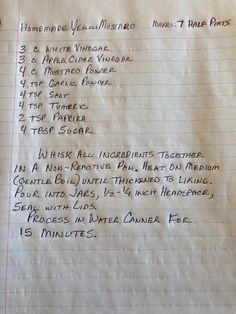 Homemade Yellow Mustard    Makes: 7 Half Pints
3 c White Vinegar
3 c Apple Cider Vinegar
4 c Mustard Powder
4 tsp Garlic Powder
4 tsp Salt
4 tsp Tumeric
2 tsp Paprika
4 tbsp Sugar
Whisk all ingredients together
in a non-reactive pan. Heat on medium
(gentle boil) until thickened to liking.
Pour into jars, 1/2-1/4 inch headspace,
seal with lids.
Process in water canner for
15 minutes.